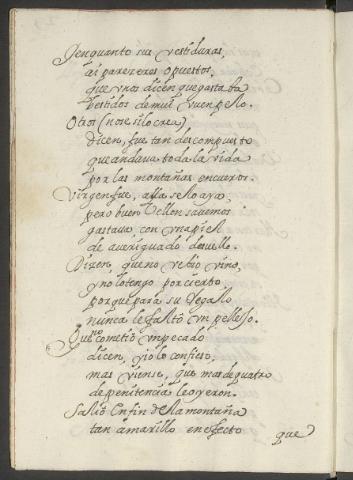 Jenquanto sus vestiduras,
ai parezeres opuestos,
que vnos dicen que gastaba
vestidos de mui vuen pelo.
Otros (no se si lo crea)
dicen, fue tan descompuesto
que andava toda la vida
por las montañas encueros.
Virgen fue, alla se lo aya,
pero buen savemos
gastava con vna piel
de averiguado
Dizen, que no vebio vino,
y no lo tengo por cierto
porque para su regalo
nunca le faltò vn pellejo.
Que no cometiò un pecado
dicen, yo lo confieso,
mas viense, que mas de quatro
de penitencia le oyeron.
Saliò en fin de la montaña
tan amarillo en efecto
que